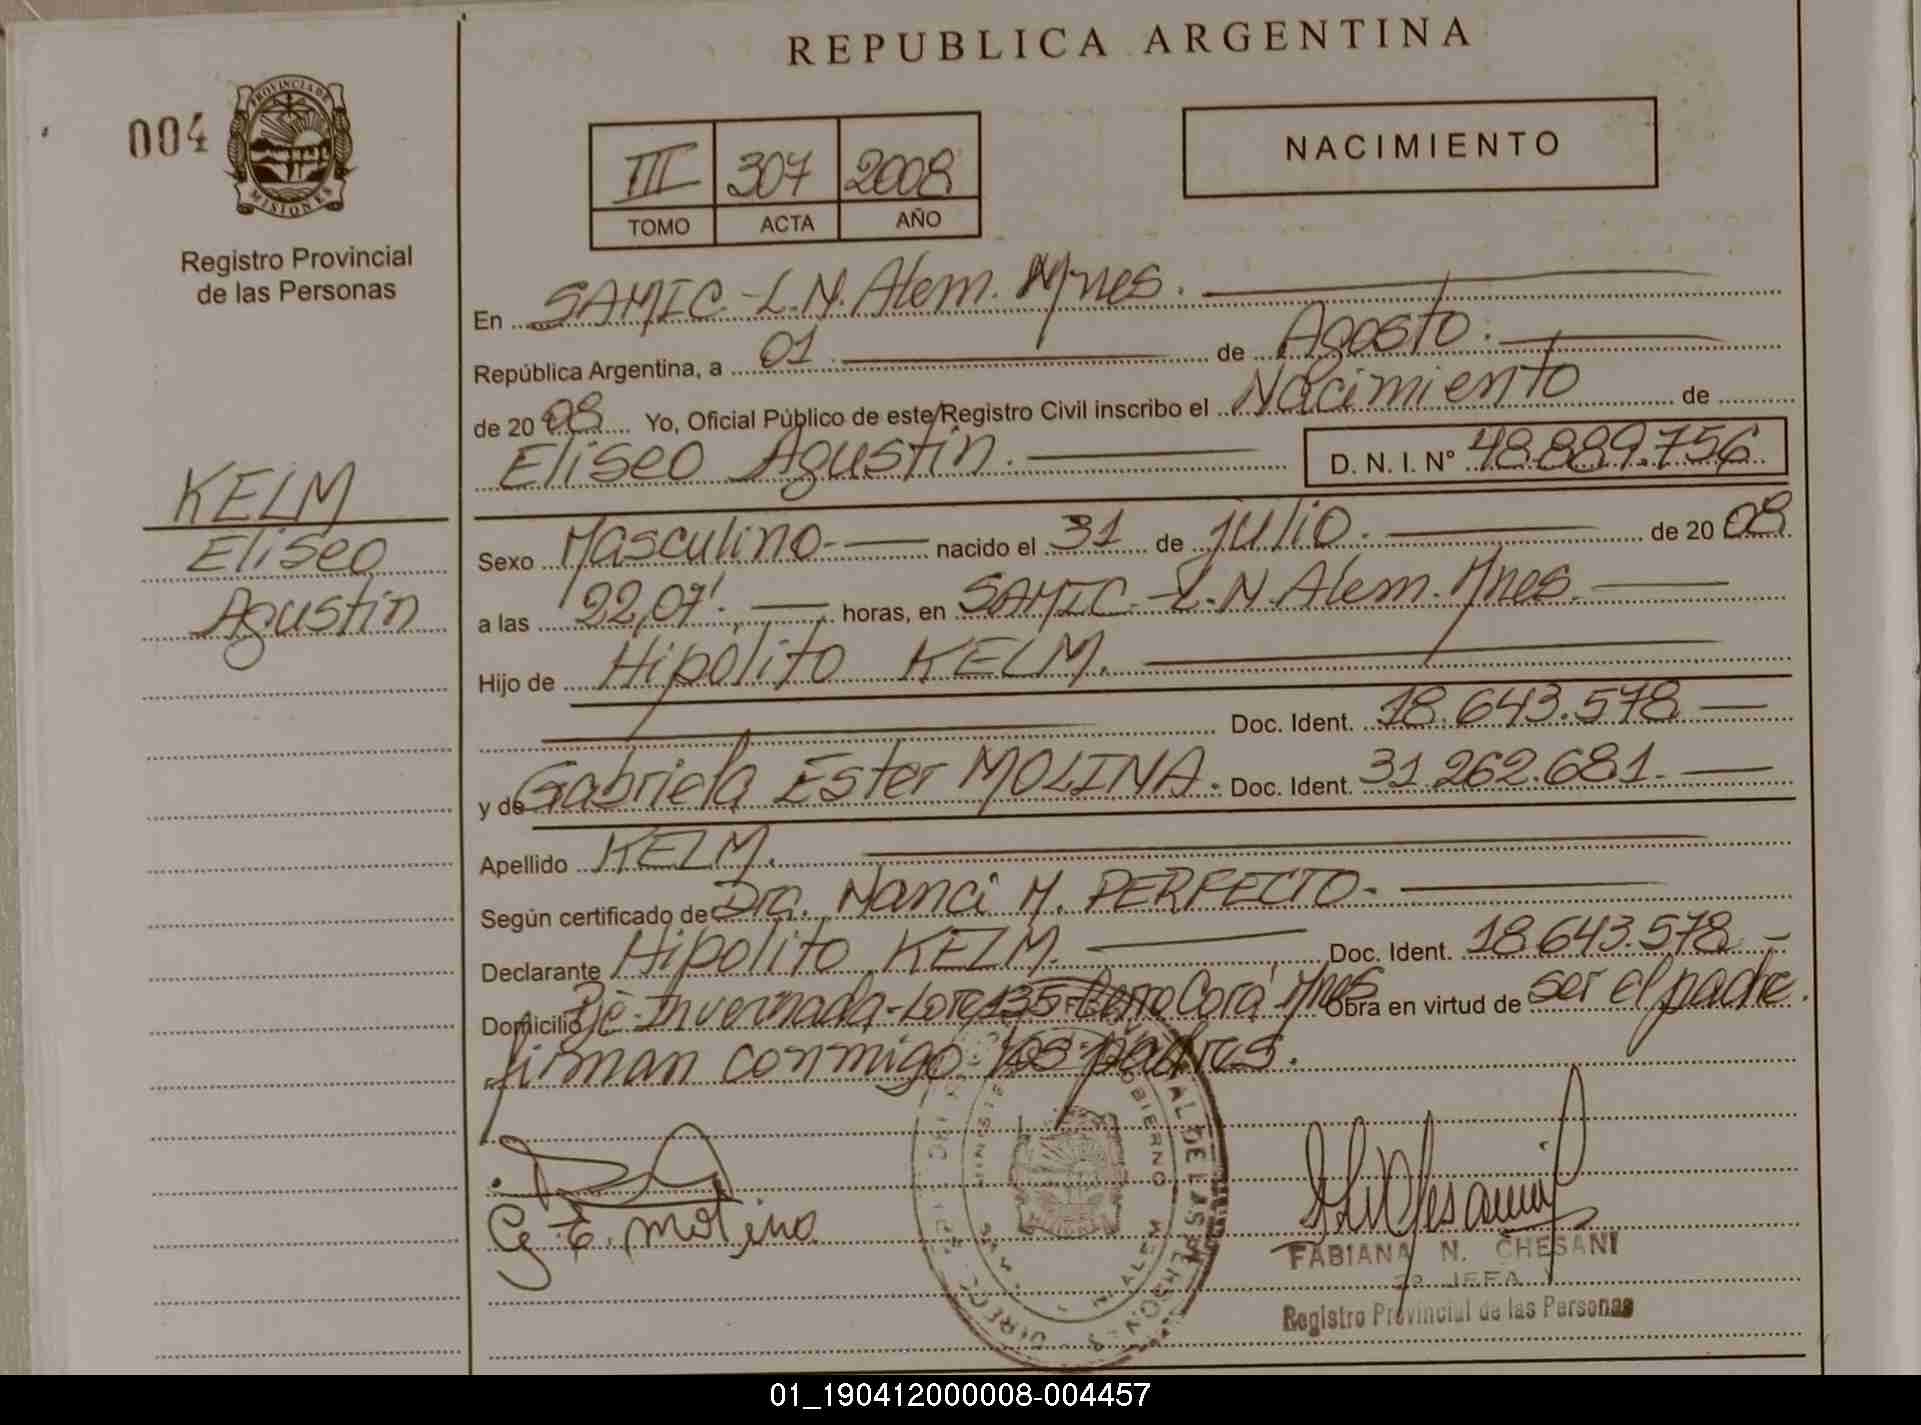 REPUBLICA ARGENTINA
004
PROVINCIA DE
MISIONES
Registro Provincial
de las Personas
III 307 2008
TOMO ACTA AÑO
NACIMIENTO
En SAMIC.-L.N. Alem. Mnes.
República Argentina, a 01 de Agosto.
de 2008 Yo, Oficial Público de este Registro Civil inscribo el Nacimiento de
Eliseo Agustín. D. N. I. Nº 48.889.756
KELM
Eliseo
Agustín
Sexo Masculino.- nacido el 31 de julio. de 2008
a las 22,07'. horas, en SAMIC.-L.N. Alem. Mnes.
Hijo de Hipólito KELM.
Doc. Ident. 18.643.578
y de Gabriela Ester MOLINA. Doc. Ident. 31.262.681.
Apellido KELM.
Según certificado de Dra. Nanci M. PERFECTO-
Declarante Hipólito KELM. Doc. Ident. 18.643.578
Domicilio Invernada-Lote 135-Cerro Corá Mnes Obra en virtud de ser el padre.
firman conmigo los padres.
G. E. Molina
FABIANA N. CHESANI
2º JEFA
Registro Provincial de las Personas
01_190412000008-004457